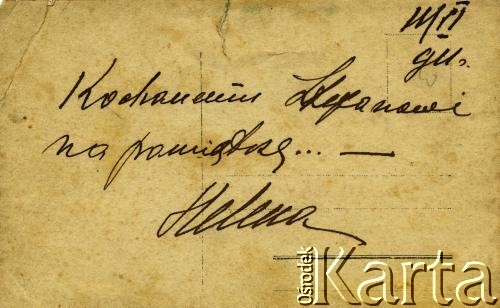 Kochanemu Stefanowi
na pamiątkę... —
Helena
Ośrodek
Karta